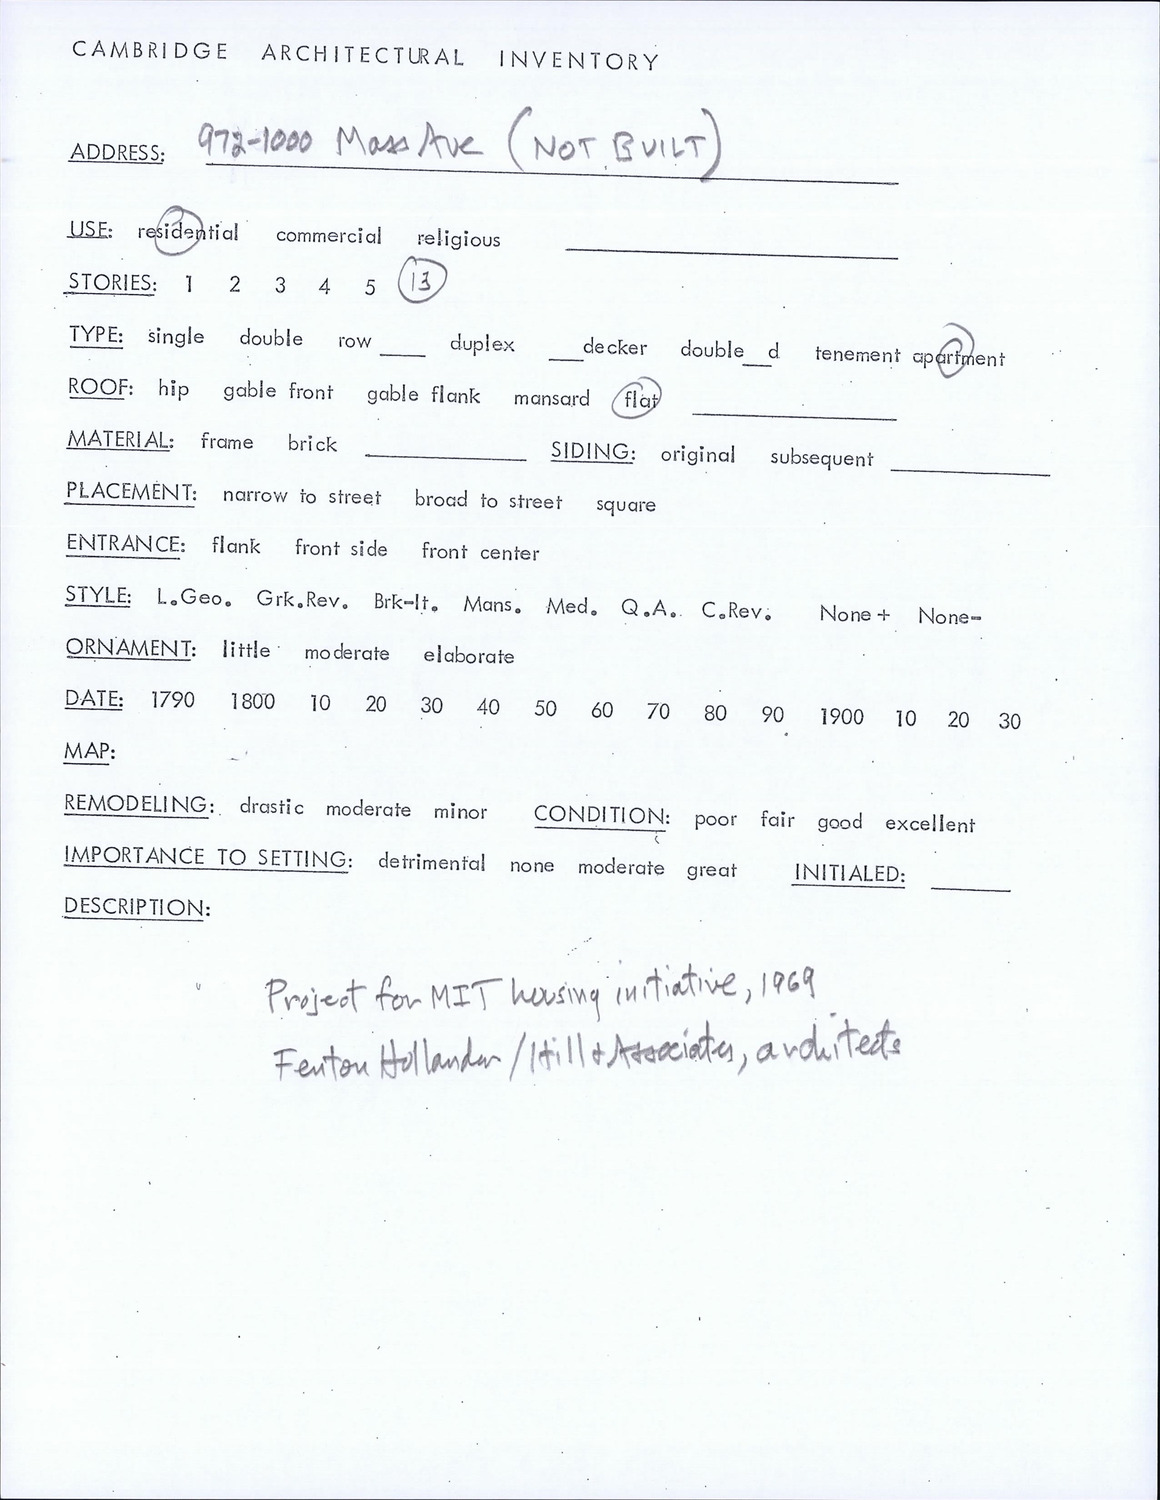 CAMBRIDGE ARCHITECTURAL INVENTORY
ADDRESS: 972-1000 Mass Ave (NOT BUILT)
USE: residential commercial religious
STORIES: 1 2 3 4 5 13
TYPE: single double row ____ duplex ___decker double__d tenement apartment
ROOF: hip gable front gable flank mansard flat
MATERIAL: frame brick ____ SIDING: original subsequent ____
PLACEMENT: narrow to street broad to street square
ENTRANCE: flank front side front center
STYLE: L.Geo. Grk.Rev. Brk-It. Mans. Med. Q.A. C.Rev. None+ None-
ORNAMENT: little moderate elaborate
DATE: 1790 1800 10 20 30 40 50 60 70 80 90 1900 10 20 30
MAP:
REMODELING: drastic moderate minor CONDITION: poor fair good excellent
IMPORTANCE TO SETTING: detrimental none moderate great INITIALED: ____
DESCRIPTION:
Project for MIT housing initiative, 1969
Fenton Hollander / Hill & Associates, architects